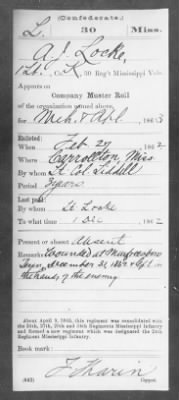 (Confederate.)
L. 30 Miss.
A. J. Locke,
1 Lt., Co. K, 30 Reg't Mississippi Vols.
Appears on
Company Muster Roll
of the organization named above,
for Mch & Apl, 1863
Enlisted:
When Feb 27, 1862
Where Carrollton, Miss
By whom Lt Col. Liddell
Period 3 years
Last paid:
By whom Lt Locke
To what time 1 Dec, 1862
Present or absent Absent
Remarks: Wounded at Murfreesboro
Tenn, December 31, 1862 & left in
the hands of the enemy
About April 9, 1865, this regiment was consolidated with
the 24th, 27th, 29th and 34th Regiments Mississippi Infantry
and formed a new regiment which was designated the
24th Regiment Mississippi Infantry.
Book mark:
(642) Copyist.